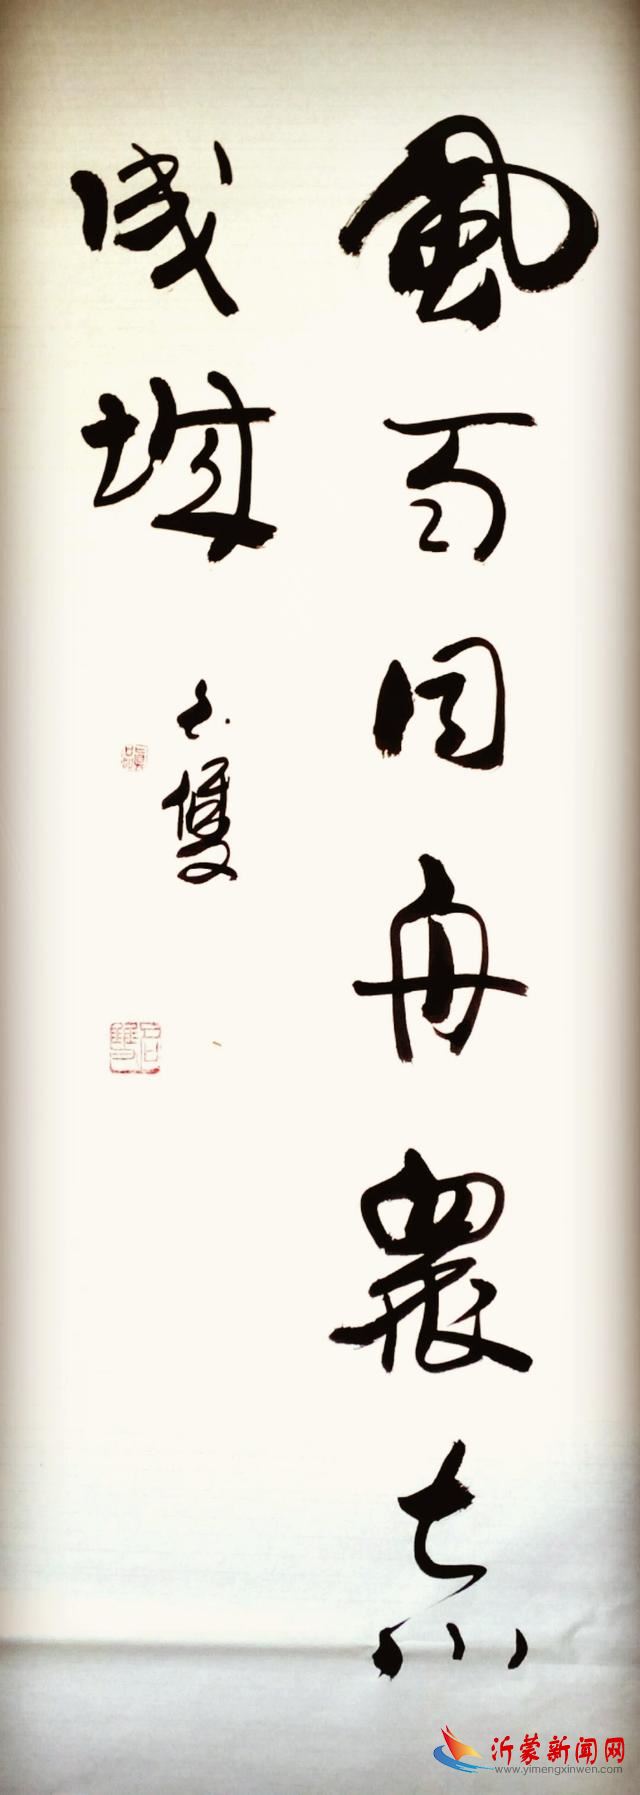 風雨同舟眾志
成城
沂蒙新闻网
www.yimengxinwen.com